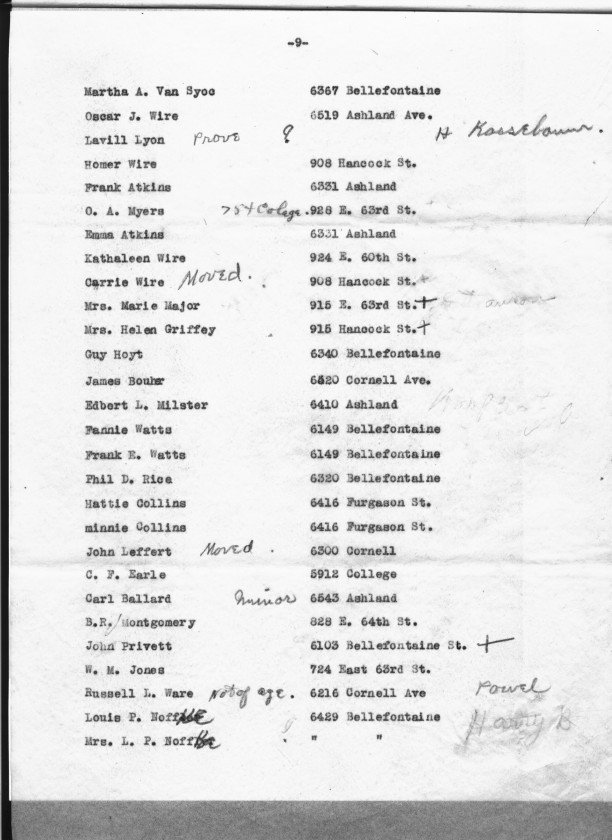 -9-
Martha A. Van Syoc 6367 Bellefontaine
Oscar J. Wire 6519 Ashland Ave.
Lavill Lyon Prove ? H Kossebaum.
Homer Wire 908 Hancock St.
Frank Atkins 6331 Ashland
O. A. Myers 75+Colege. 928 E. 63rd St.
Emma Atkins 6331 Ashland
Kathaleen Wire 924 E. 60th St.
Carrie Wire Moved. 908 Hancock St.+
Mrs. Marie Major 915 E. 63rd St.+
Mrs. Helen Griffey 915 Hancock St.+
Guy Hoyt 6340 Bellefontaine
James Bouhr 6520 Cornell Ave.
Edbert L. Milster 6410 Ashland
Fannie Watts 6149 Bellefontaine
Frank E. Watts 6149 Bellefontaine
Phil D. Rice 6320 Bellefontaine
Hattie Collins 6416 Furgason St.
minnie Collins 6416 Furgason St.
John Leffert Moved . 6300 Cornell
C. F. Earle 5912 College
Carl Ballard minor 6543 Ashland
B.R./Montgomery 828 E. 64th St.
John Privett 6103 Bellefontaine St. +
W. M. Jones 724 East 63rd St.
Russell L. Ware Not of age. 6216 Cornell Ave Powel
Louis P. Noffke 6429 Bellefontaine Harry B
Mrs. L. P. Noffke " "